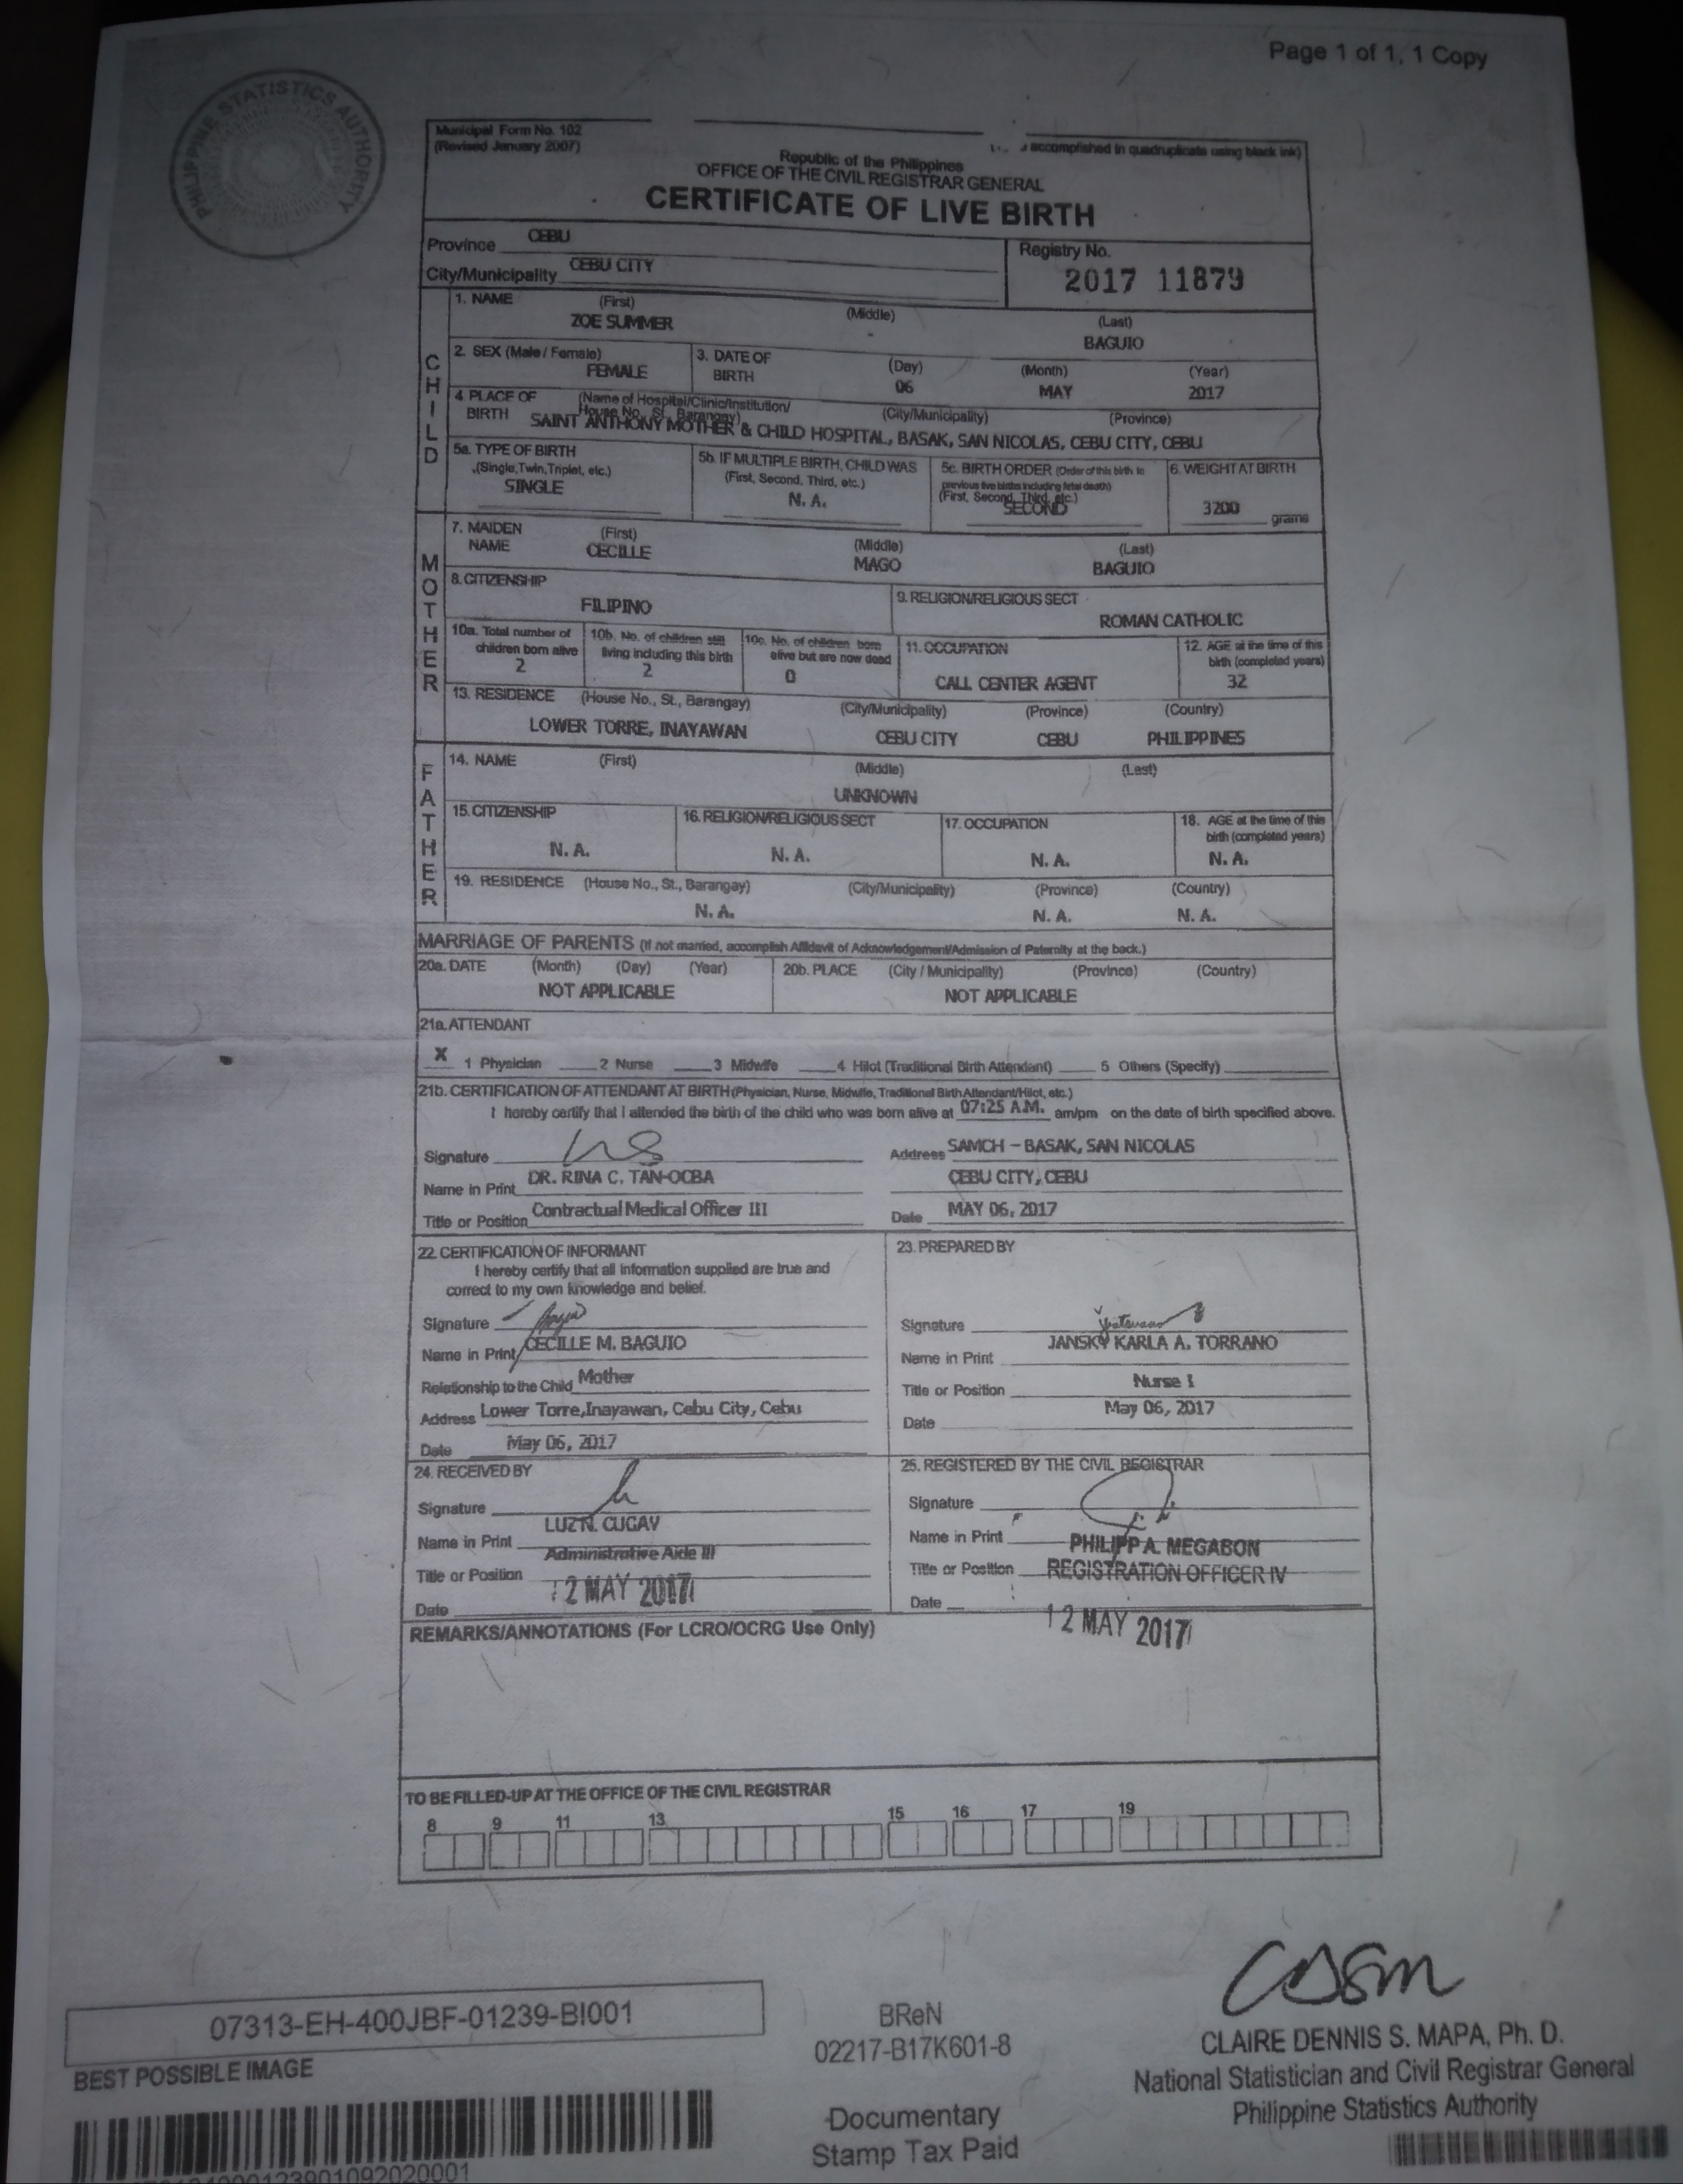 Page 1 of 1, 1 Copy
PHILIPPINE STATISTICS AUTHORITY
Municipal Form No. 102
(Revised January 2007)
accomplished in quadruplicate using black ink)
Republic of the Philippines
OFFICE OF THE CIVIL REGISTRAR GENERAL
CERTIFICATE OF LIVE BIRTH
Province CEBU
Registry No.
City/Municipality CEBU CITY
2017 11879
CHILD
1. NAME (First) (Middle) (Last)
ZOE SUMMER - BAGUIO
2. SEX (Male / Female) 3. DATE OF BIRTH (Day) (Month) (Year)
FEMALE 06 MAY 2017
4 PLACE OF BIRTH (Name of Hospital/Clinic/Institution/
House No., St., Barangay) (City/Municipality) (Province)
SAINT ANTHONY MOTHER & CHILD HOSPITAL, BASAK, SAN NICOLAS, CEBU CITY, CEBU
5a. TYPE OF BIRTH 5b. IF MULTIPLE BIRTH, CHILD WAS 5c. BIRTH ORDER (Order of this birth to 6. WEIGHT AT BIRTH
(Single,Twin,Triplet, etc.) (First, Second, Third, etc.) previous live births including fetal death)
(First, Second, Third, etc.)
SINGLE N. A. SECOND 3200 grams
MOTHER
7. MAIDEN NAME (First) (Middle) (Last)
CECILLE MAGO BAGUIO
8. CITIZENSHIP 9. RELIGION/RELIGIOUS SECT
FILIPINO ROMAN CATHOLIC
10a. Total number of children born alive 10b. No. of children still living including this birth 10c. No. of children born alive but are now dead 11. OCCUPATION 12. AGE at the time of this birth (completed years)
2 2 0 CALL CENTER AGENT 32
13. RESIDENCE (House No., St., Barangay) (City/Municipality) (Province) (Country)
LOWER TORRE, INAYAWAN CEBU CITY CEBU PHILIPPINES
FATHER
14. NAME (First) (Middle) (Last)
UNKNOWN
15. CITIZENSHIP 16. RELIGION/RELIGIOUS SECT 17. OCCUPATION 18. AGE at the time of this birth (completed years)
N. A. N. A. N. A. N. A.
19. RESIDENCE (House No., St., Barangay) (City/Municipality) (Province) (Country)
N. A. N. A. N. A.
MARRIAGE OF PARENTS (If not married, accomplish Affidavit of Acknowledgement/Admission of Paternity at the back.)
20a. DATE (Month) (Day) (Year) 20b. PLACE (City / Municipality) (Province) (Country)
NOT APPLICABLE NOT APPLICABLE
21a. ATTENDANT
X 1 Physician 2 Nurse 3 Midwife 4 Hilot (Traditional Birth Attendant) 5 Others (Specify)
21b. CERTIFICATION OF ATTENDANT AT BIRTH (Physician, Nurse, Midwife, Traditional Birth Attendant/Hilot, etc.)
I hereby certify that I attended the birth of the child who was born alive at 07:25 A.M. am/pm on the date of birth specified above.
Signature Address SAMCH – BASAK, SAN NICOLAS
Name in Print DR. RINA C. TAN-OCBA CEBU CITY, CEBU
Title or Position Contractual Medical Officer III Date MAY 06, 2017
22. CERTIFICATION OF INFORMANT
I hereby certify that all information supplied are true and
correct to my own knowledge and belief.
Signature
Name in Print CECILLE M. BAGUIO
Relationship to the Child Mother
Address Lower Torre,Inayawan, Cebu City, Cebu
Date May 06, 2017
23. PREPARED BY
Signature
Name in Print JANSKY KARLA A. TORRANO
Title or Position Nurse I
Date May 06, 2017
24. RECEIVED BY
Signature
Name in Print LUZ N. CUGAY
Title or Position Administrative Aide III
Date 12 MAY 2017
25. REGISTERED BY THE CIVIL REGISTRAR
Signature
Name in Print PHILIPP A. MEGABON
Title or Position REGISTRATION OFFICER IV
Date 12 MAY 2017
REMARKS/ANNOTATIONS (For LCRO/OCRG Use Only)
TO BE FILLED-UP AT THE OFFICE OF THE CIVIL REGISTRAR
8 9 11 13 15 16 17 19
07313-EH-400JBF-01239-BI001
BEST POSSIBLE IMAGE
BReN
02217-B17K601-8
Documentary
Stamp Tax Paid
CLAIRE DENNIS S. MAPA, Ph. D.
National Statistician and Civil Registrar General
Philippine Statistics Authority